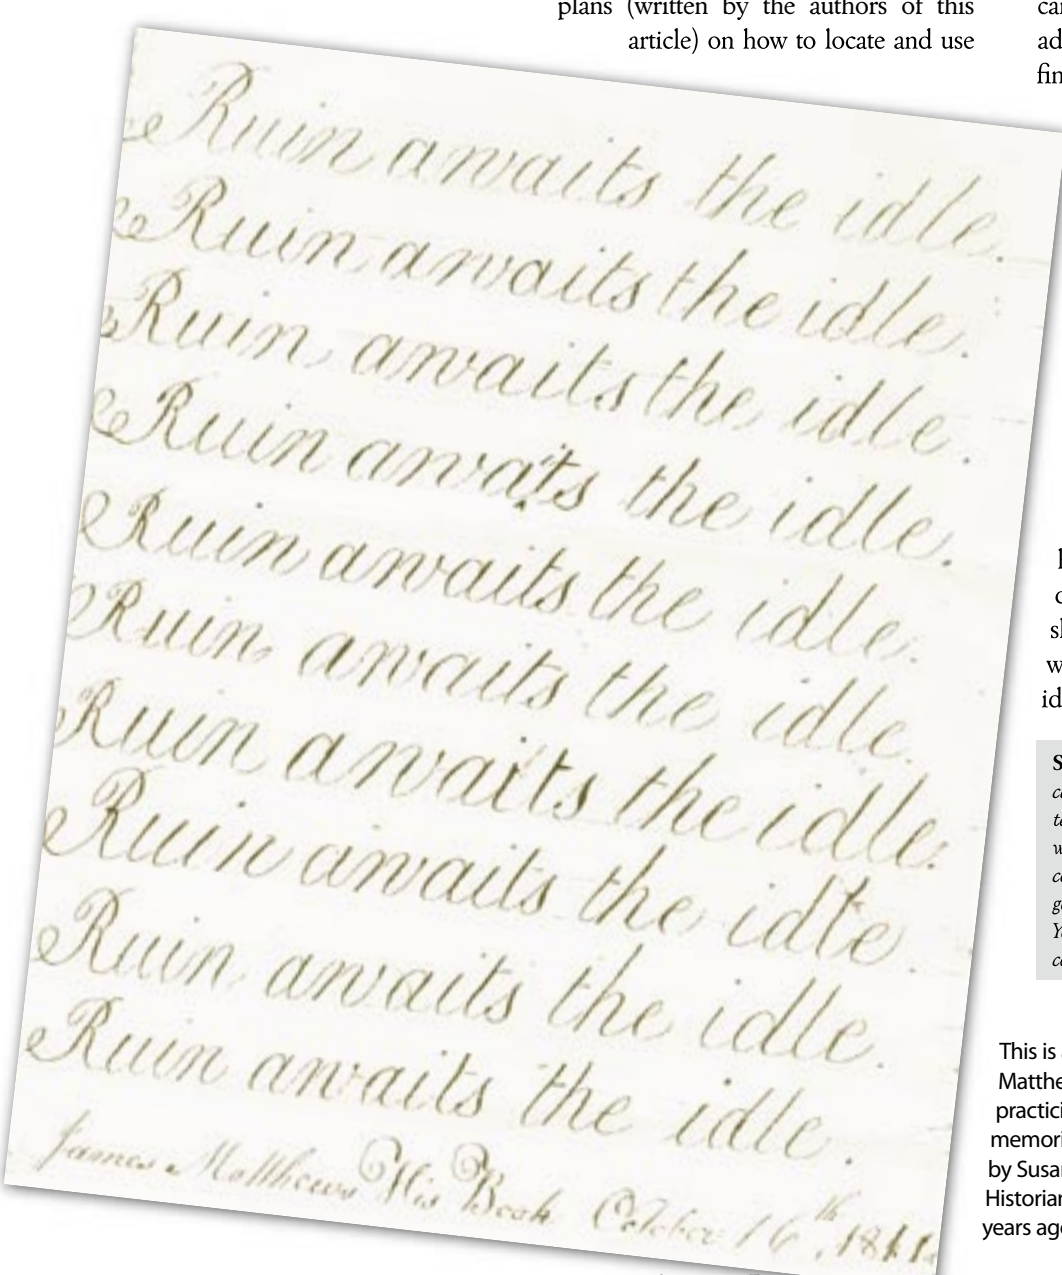 plans (written by the authors of this
article) on how to locate and use
Ruin awaits the idle.
Ruin awaits the idle.
Ruin awaits the idle.
Ruin awaits the idle.
Ruin awaits the idle.
Ruin awaits the idle.
Ruin awaits the idle.
Ruin awaits the idle.
Ruin awaits the idle.
Ruin awaits the idle.
James Matthews His Book October 16th, 1811.
This is
by
Historian
years